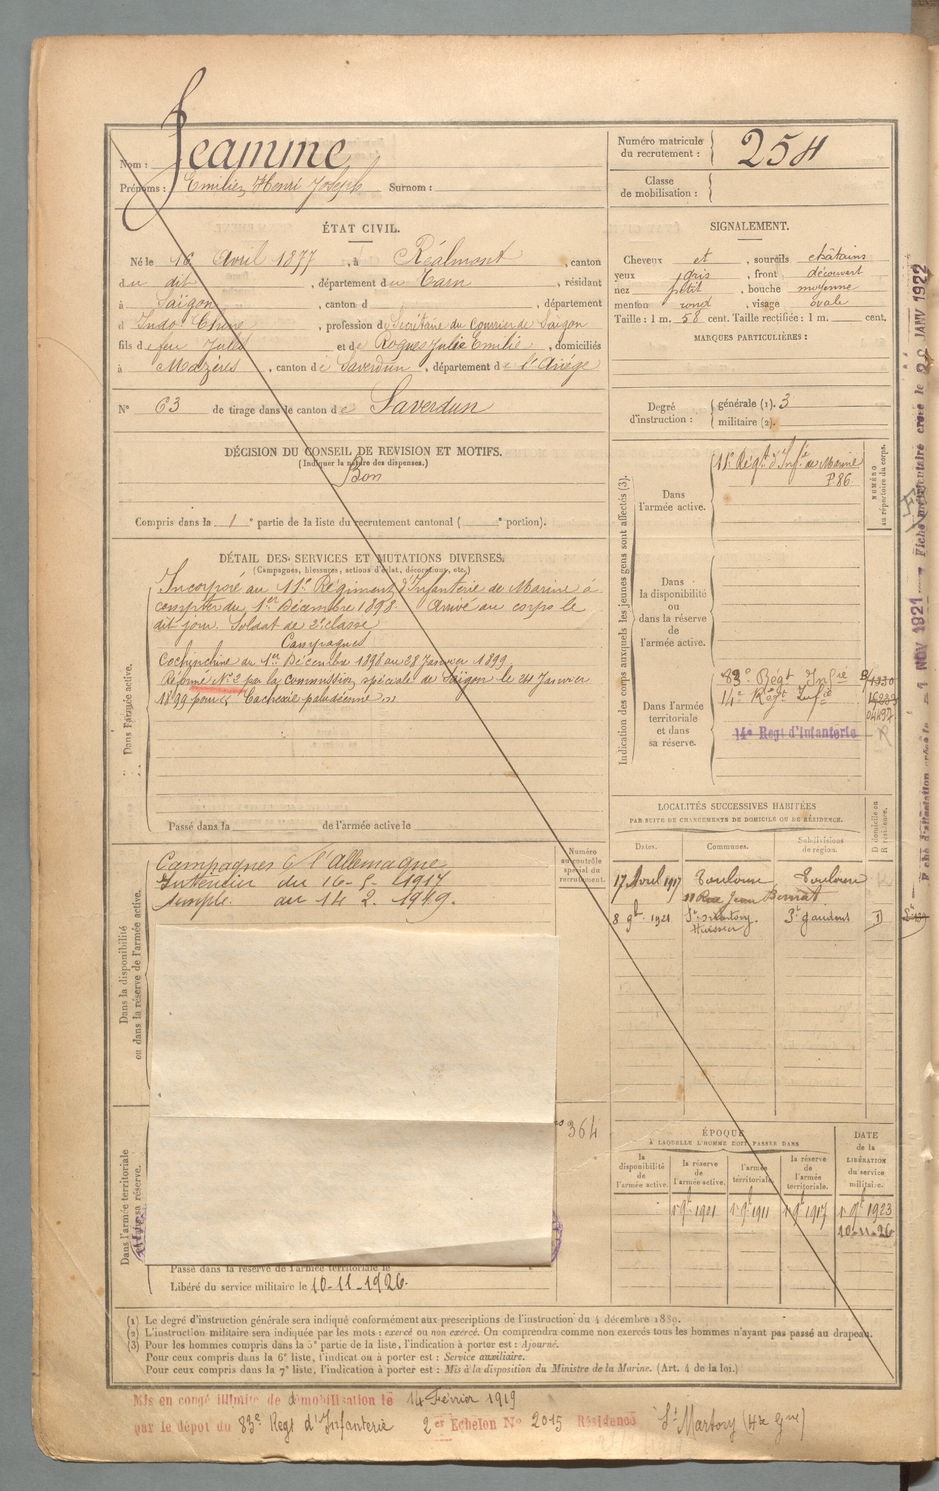 Nom : Jeamme
Prénoms : Emilien Henri Joseph Surnom :
Numéro matricule du recrutement : 254
Classe de mobilisation :
ÉTAT CIVIL.
Né le 16 Avril 1877, à Réalmont, canton
du dit, département du Tarn, résidant
à Saïgon, canton d , département
d Indo-Chine, profession de Secrétaire du Courrier de Saïgon
fils de feu Jules et de Rogues Julie Emilie, domiciliés
à Mazères, canton de Saverdun, département de l'Ariège
N° 63 de tirage dans le canton de Saverdun
SIGNALEMENT.
Cheveux et , sourcils châtains
yeux gris, front découvert
nez petit, bouche moyenne
menton rond, visage ovale
Taille : 1 m. 58 cent. Taille rectifiée : 1 m. cent.
MARQUES PARTICULIÈRES :
Degré d'instruction : générale (1). 3
militaire (2).
DÉCISION DU CONSEIL DE REVISION ET MOTIFS.
(Indiquer la nature des dispenses.)
Bon
Compris dans la 1e partie de la liste du recrutement cantonal ( e portion).
DÉTAIL DES SERVICES ET MUTATIONS DIVERSES.
(Campagnes, blessures, actions d'éclat, décorations, etc.)
Dans l'armée active.
Incorporé au 11e Régiment d'Infanterie de Marine à
compter du 1er Décembre 1898. Arrivé au corps le
dit jour. Soldat de 2e classe
Campagnes
Cochinchine du 1er Décembre 1898 au 28 Janvier 1899
Réformé N° 2 par la commission spéciale de Saïgon le 24 Janvier
1899 pour "Cachexie paludéenne"
Passé dans la de l'armée active le
Indication des corps auxquels les jeunes gens sont affectés (3).
NUMÉRO au répertoire du corps.
Dans l'armée active.
11e Régt d'Infie de Marine
P 86
Dans la disponibilité ou dans la réserve de l'armée active.
Dans l'armée territoriale et dans sa réserve.
83e Régt Infie
14e Régt Infie
14e Regt d'Infanterie
LOCALITÉS SUCCESSIVES HABITÉES
PAR SUITE DE CHANGEMENTS DE DOMICILE OU DE RÉSIDENCE.
Dates. Communes. Subdivisions de région. D domicile ou R résidence.
17 Avril 1917 Toulouse Toulouse
11 Rue Jean Bernat
8 9bre 1921 St Martory St Gaudens D
Huissier
Dans la disponibilité ou dans la réserve de l'armée active.
Numéro au contrôle spécial du recrutement.
Campagnes C/ l'Allemagne
Intérieur du 16-5-1917
simple. au 14 2. 1919.
Dans l'armée territoriale et dans sa réserve.
364
ÉPOQUE
À LAQUELLE L'HOMME DOIT PASSER DANS
la disponibilité de l'armée active. la réserve de l'armée active. l'armée territoriale. la réserve de l'armée territoriale.
DATE de la LIBÉRATION du service militaire.
1 9bre 1901 1 9bre 1911 1 9bre 1917 1 9bre 1923
10-11-26
Passé dans la réserve de l'armée territoriale le
Libéré du service militaire le 10-11-1926.
(1) Le degré d'instruction générale sera indiqué conformément aux prescriptions de l'instruction du 4 décembre 1889.
(2) L'instruction militaire sera indiquée par les mots : exercé ou non exercé. On comprendra comme non exercés tous les hommes n'ayant pas passé au drapeau.
(3) Pour les hommes compris dans la 5e partie de la liste, l'indication à porter est : Ajourné.
Pour ceux compris dans la 6e liste, l'indication à porter est : Service auxiliaire.
Pour ceux compris dans la 7e liste, l'indication à porter est : Mis à la disposition du Ministre de la Marine. (Art. 4 de la loi.)
Mis en congé illimité de démobilisation le 14 Février 1919
par le dépot du 83e Regt d'Infanterie 2e Echelon N° 2015 Résidence St Martory (Hte Gne)